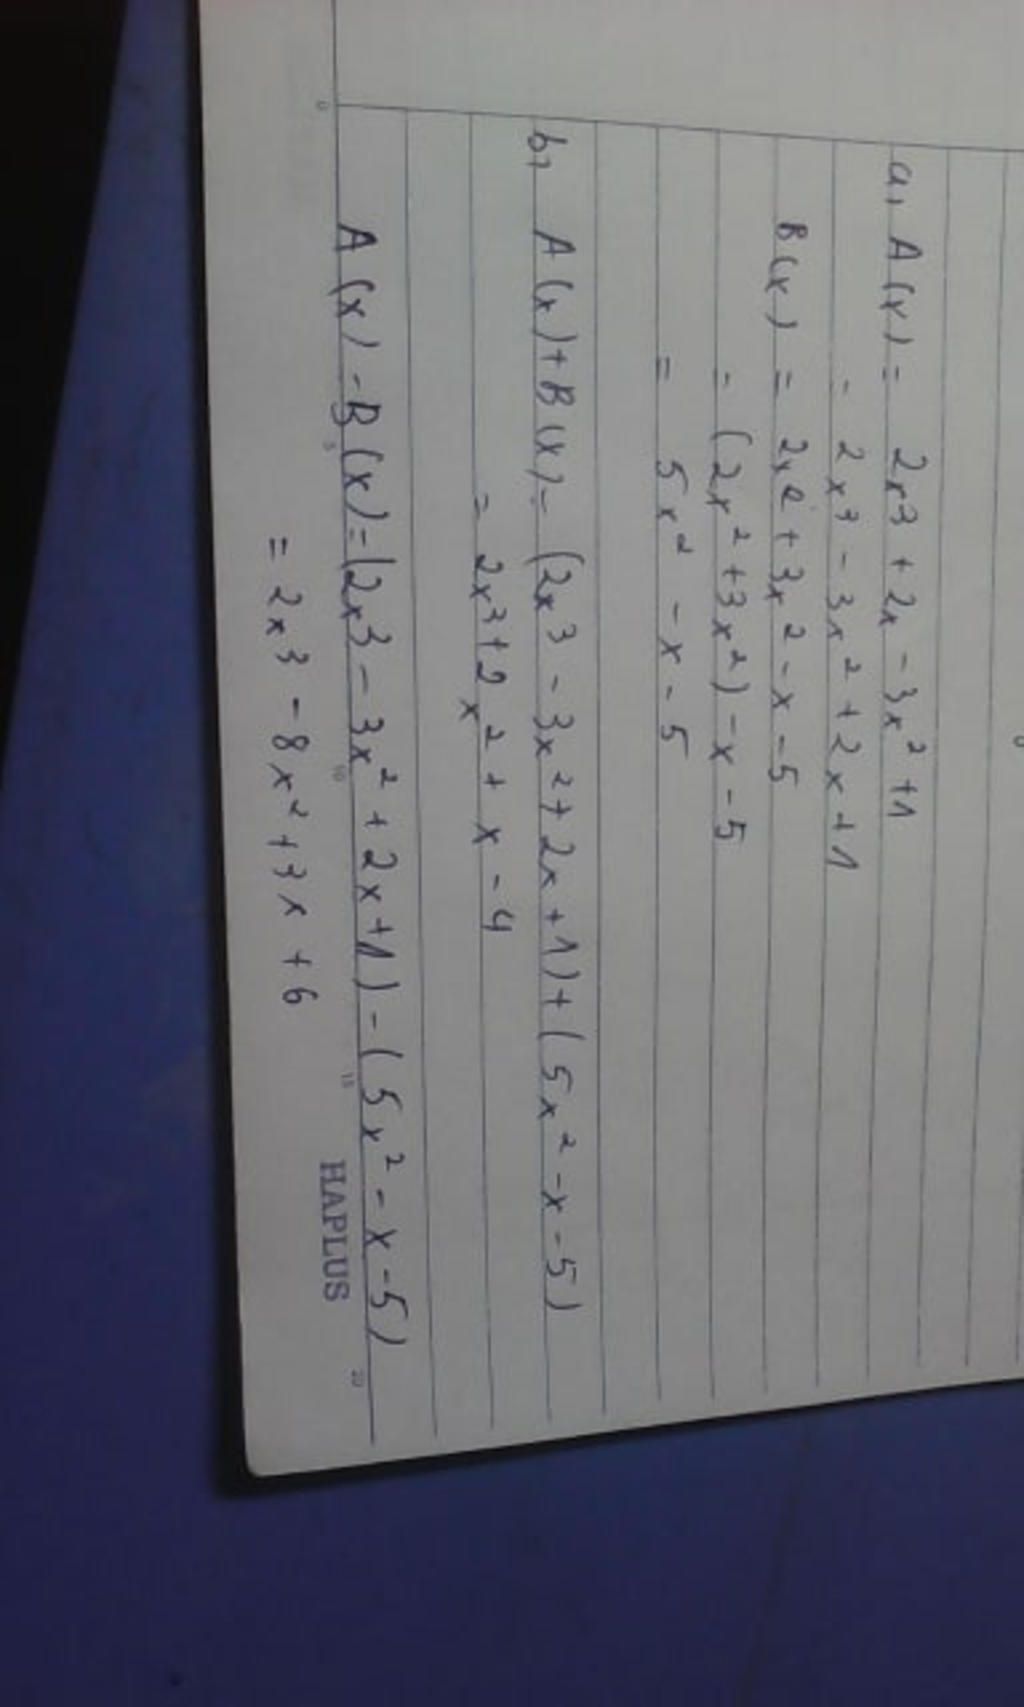 a, A(x) = 2x³ + 2x - 3x² + 1
= 2x³ - 3x² + 2x + 1
B(x) = 2x² + 3x² - x - 5
= (2x² + 3x²) - x - 5
= 5x² - x - 5
b, A(x) + B(x) = (2x³ - 3x² + 2x + 1) + (5x² - x - 5)
= 2x³ + 2x² + x - 4
A(x) - B(x) = (2x³ - 3x² + 2x + 1) - (5x² - x - 5)
= 2x³ - 8x² + 3x + 6
0 5 10 15 20
HAPLUS